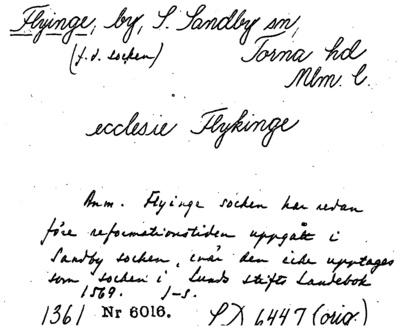 Flyinge, by, S. Sandby sn,
(f.d. socken) Torna hd
Mlm. l.
ecclesie Flykinge
Anm. Flyinge socken har redan
före reformationstiden uppgått i
Sandby socken, när den icke upptages
som socken i Lunds stifts Landebok
1569. J-S.
1361 Nr 6016. SD 6447 (orig.)